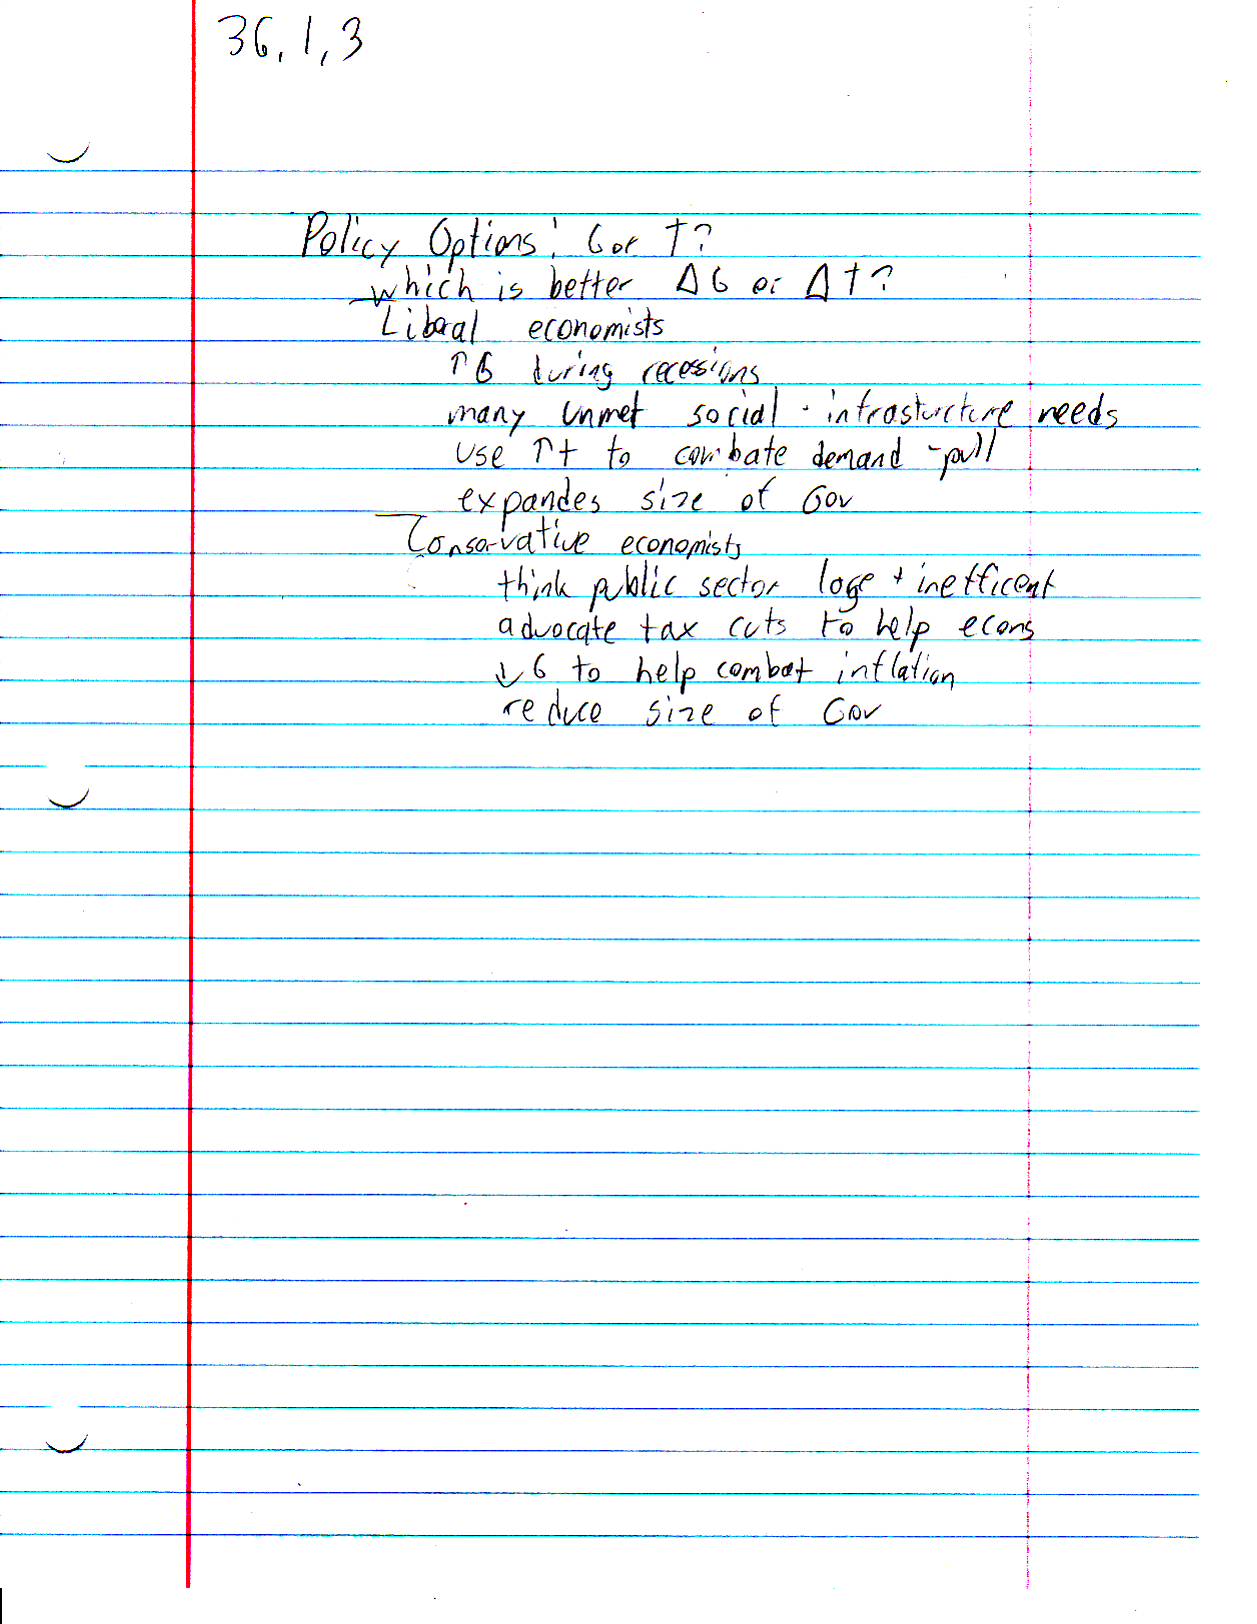 36, 1, 3
Policy Options: G or T?
which is better ΔG or ΔT?
Liberal economists
↑G during recessions
many unmet social + infrasturcture needs
use ↑t to combate demand-pull
expandes size of Gov
Conservative economists
think public sector loge + inefficent
advocate tax cuts to help econs
↓G to help combat inflation
reduce size of Gov